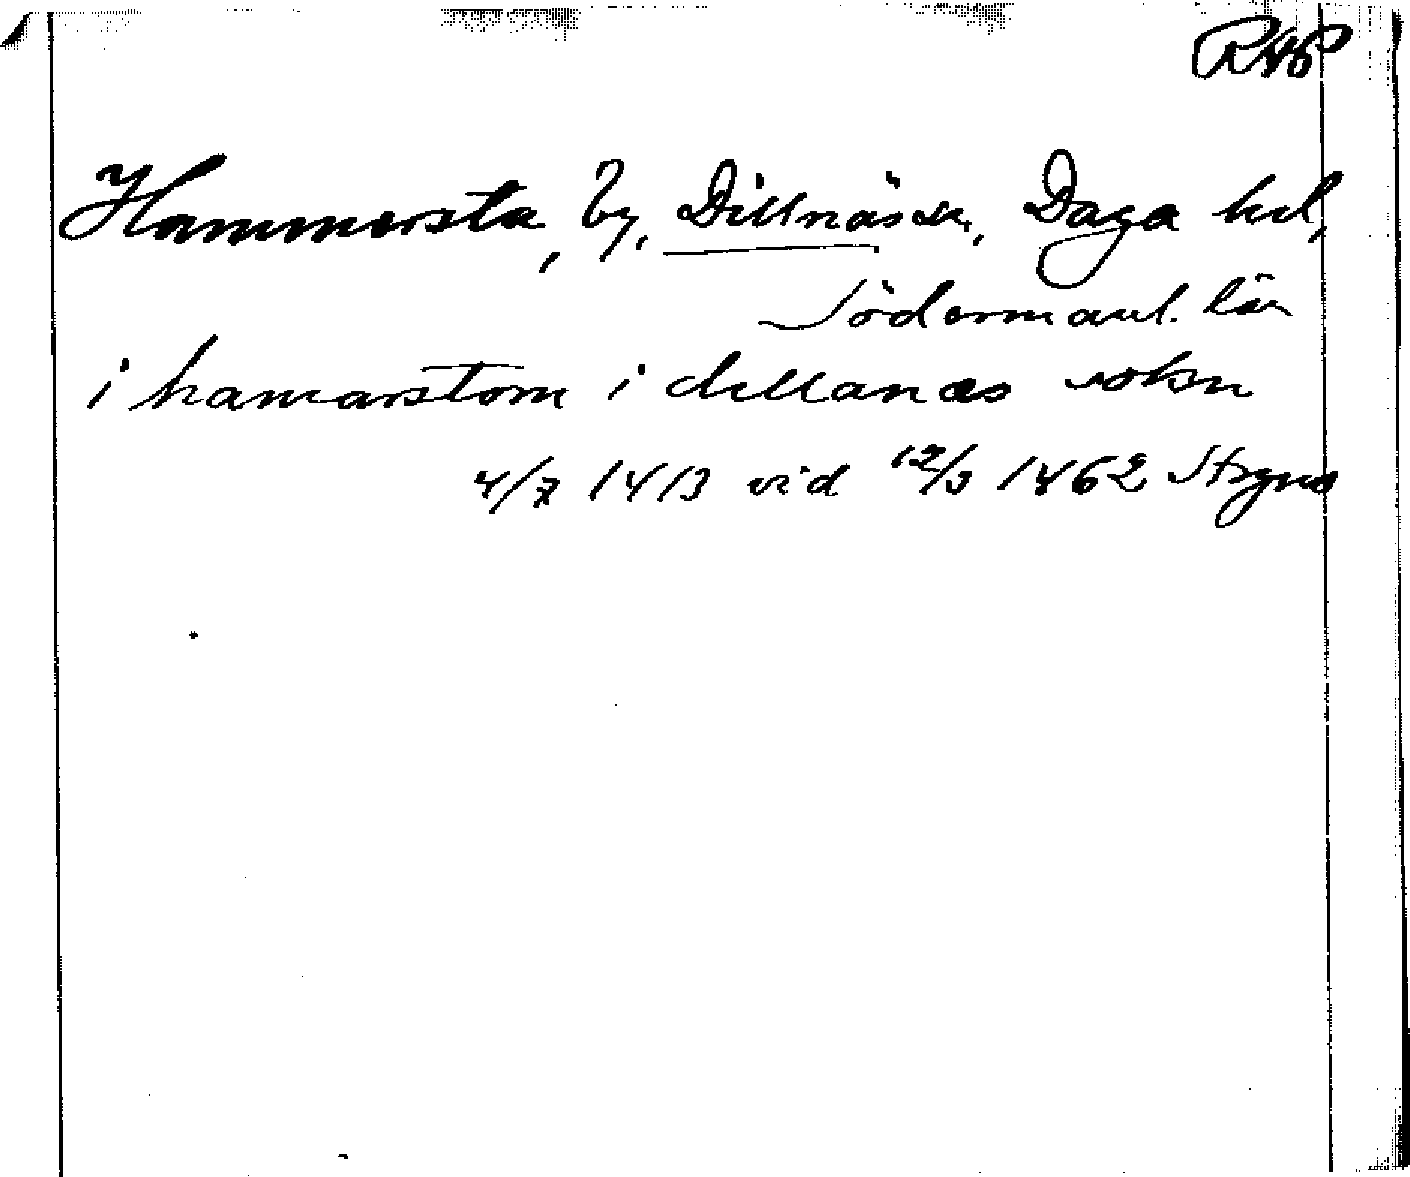 Hammersta, by, Dillnäs sn, Daga hd,
Södermanl. län
i hamarstom i dillanæs sokn
4/7 1413 vid 12/3 1462 Strgns